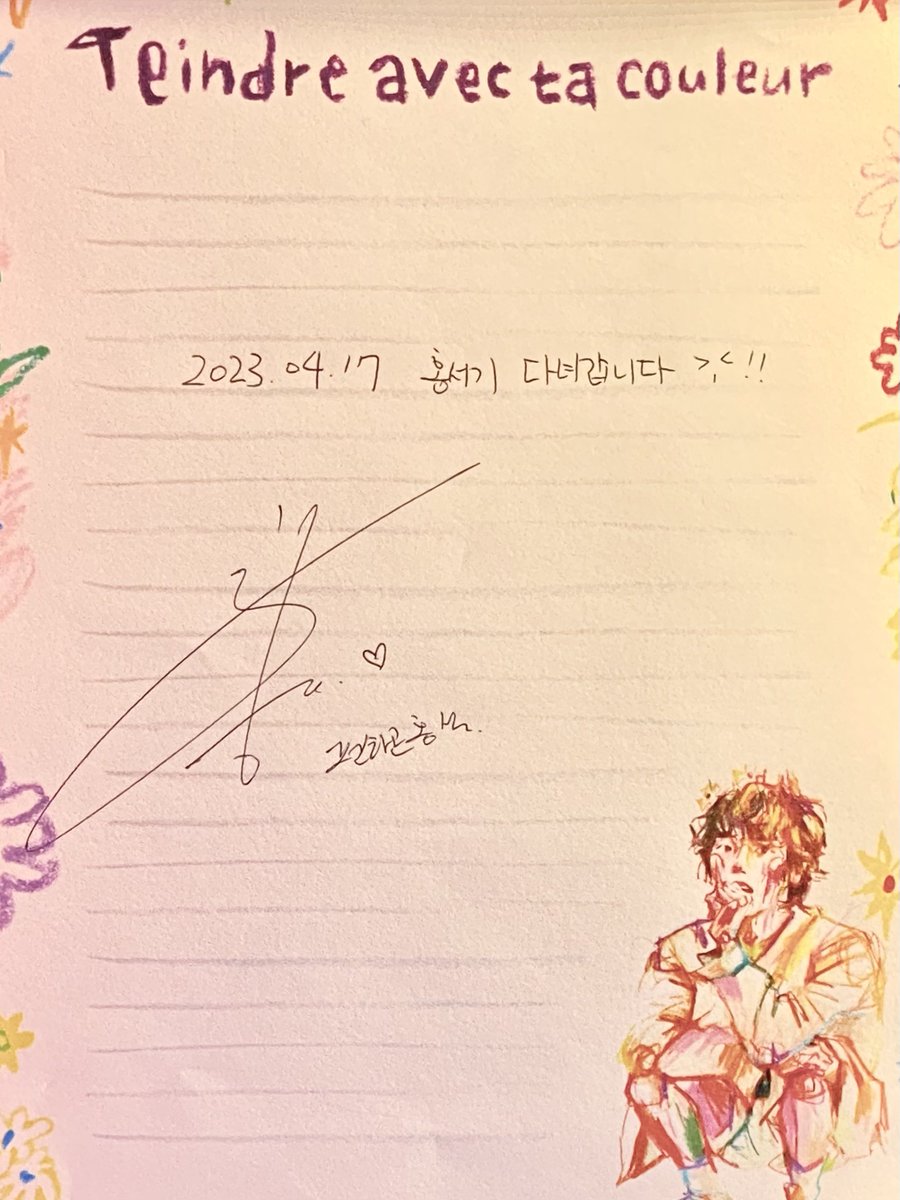 Teindre avec ta couleur
2023.04.17 홍서기 다녀갑니다 >,< !!